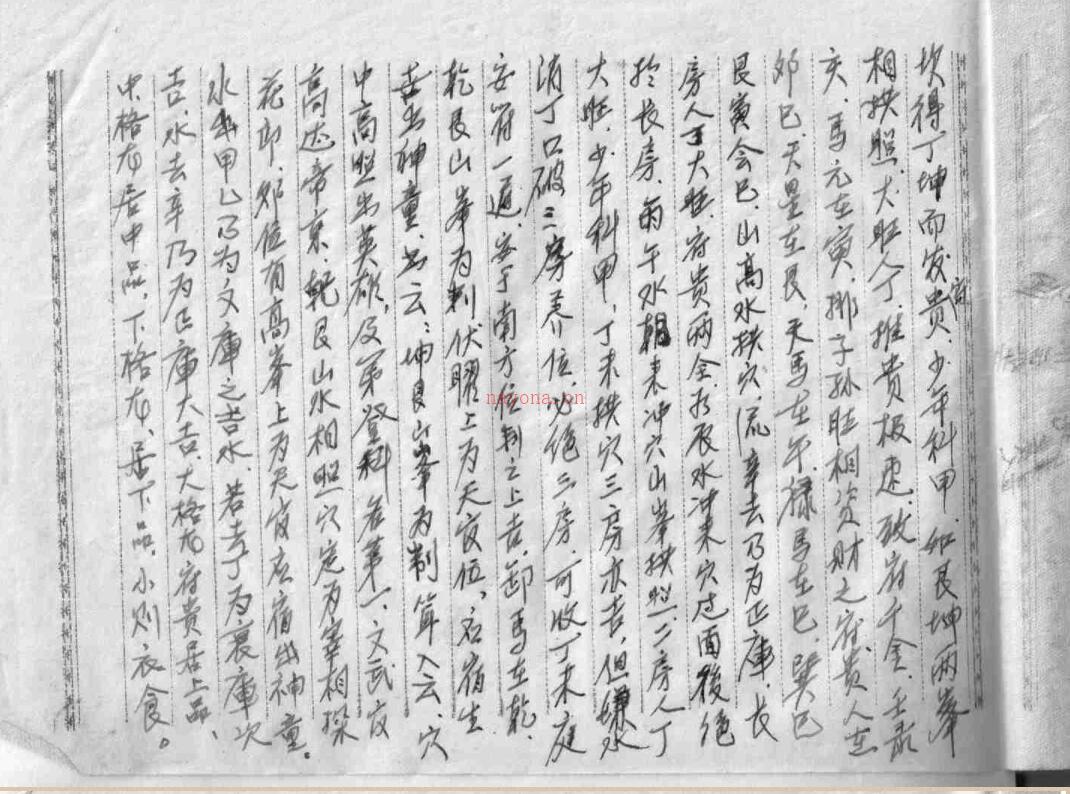 坎得丁坤而发富贵、少年科甲、如艮坤两峯
相拱照、大旺人丁、推贵极速、致府千金、壬录
亥、马元在寅、挪子孙旺相资财之府、贵人在
卯巳、天星在艮、天马在午、禄马在巳、巽巳
艮寅会巳、山高水拱穴、流辛去乃为正庫、长
房人丁大旺、府贵两全、水冲来穴过面後绝
于长房、丙午水朝来冲穴山峯拱照、二房人丁
大旺、少年科甲、丁未拱穴三房亦吉、但嫌水
消丁口破三房养位、必绝三房、可收丁未庭
安符一道、安于南方位制之上吉、卸马在乾、
乾艮山峯为制伏曜上为天官位、宿生
吉出神童、书云：坤艮山峯为制耳入云、穴
中高照出英雄、及第登科居第一、文武官
高近帝京、乾艮山水相照穴定为宰相探
花郎、卯位有高峯上为天官宿出神童。
水甲乙乃为文庫之吉水、若丁为裏庫次
吉、水去辛乃为正庫大吉、大格龙府贵居上品、
中格龙居中品、下格龙、居下品、小则衣食。
nayona.cn